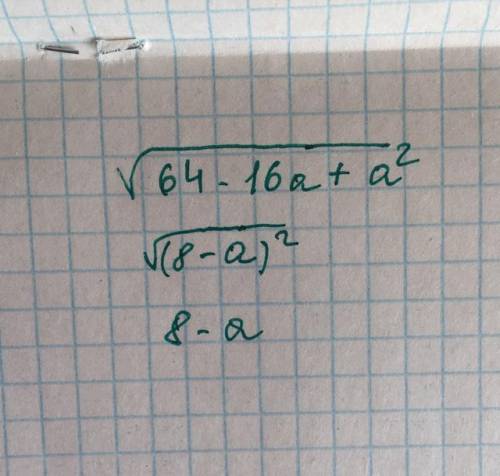 √(64 - 16a + a²)
√(8 - a)²
8 - a